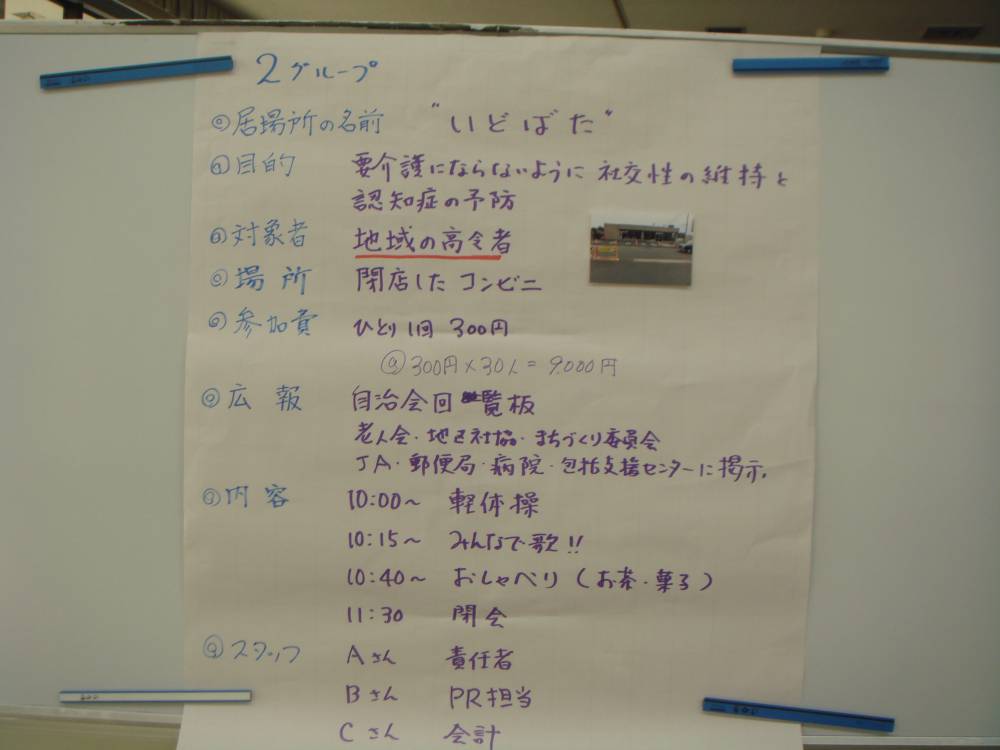 2グループ
◎居場所の名前 "いどばた"
◎目的 要介護にならないように 社交性の維持と
認知症の予防
◎対象者 地域の高令者
◎場所 閉店した コンビニ
◎参加費 ひとり1回 300円
@300円×30人=9,000円
◎広報 自治会回覧板
老人会・地区社協・まちづくり委員会
JA・郵便局・病院・包括支援センターに掲示。
◎内容 10:00~ 軽体操
10:15~ みんなで歌!!
10:40~ おしゃべり(お茶・菓子)
11:30 閉会
◎スタッフ Aさん 責任者
Bさん PR担当
Cさん 会計